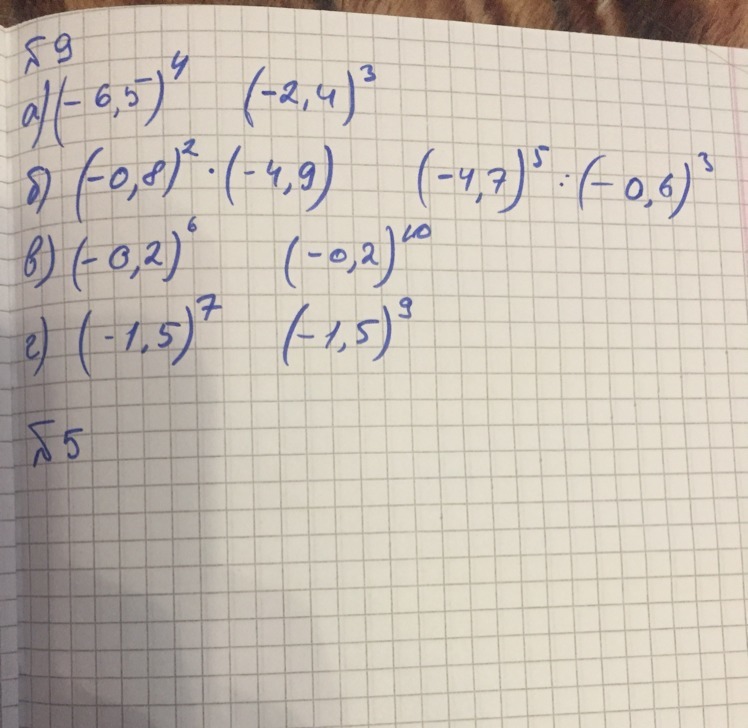 № 9
а) (-6,5)⁴ (-2,4)³
б) (-0,8)² · (-4,9) (-4,7)⁵ : (-0,6)³
в) (-0,2)⁶ (-0,2)¹⁰
г) (-1,5)⁷ (-1,5)⁹
№ 5